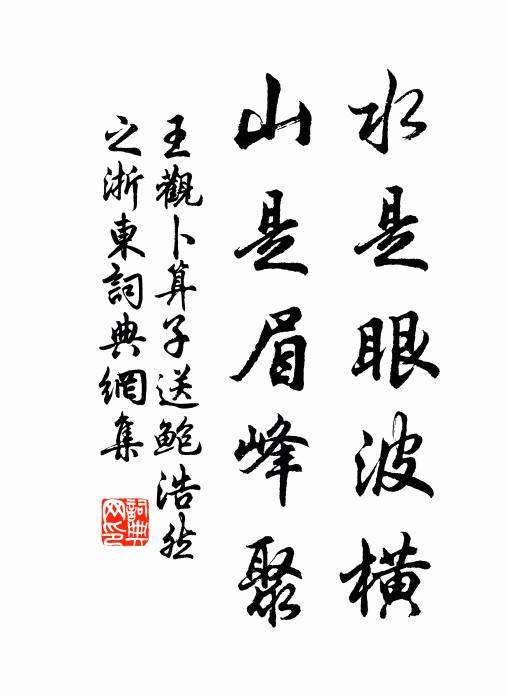 水是眼波橫
山是眉峰聚
王觀卜算子送鮑浩然
之浙東詞典網集
詞典
网印